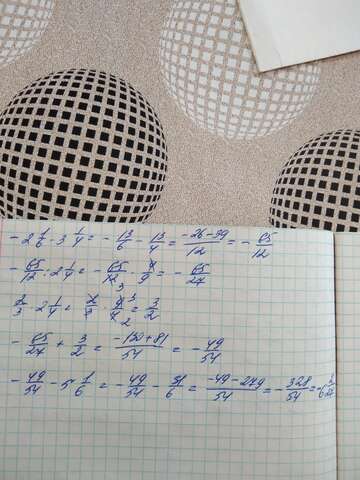 - 2 1/6 - 3 1/4 = - 13/6 - 13/4 = -26-39/12 = - 65/12
- 65/12 : 2 1/4 = - 65/12 3 · 4/9 = - 65/27
2/3 · 2 1/4 = 2/3 · 9/4 3 2 = 3/2
- 65/27 + 3/2 = -130+81/54 = - 49/54
- 49/54 - 5 1/6 = - 49/54 - 31/6 = -49-279/54 = - 328/54 = -6